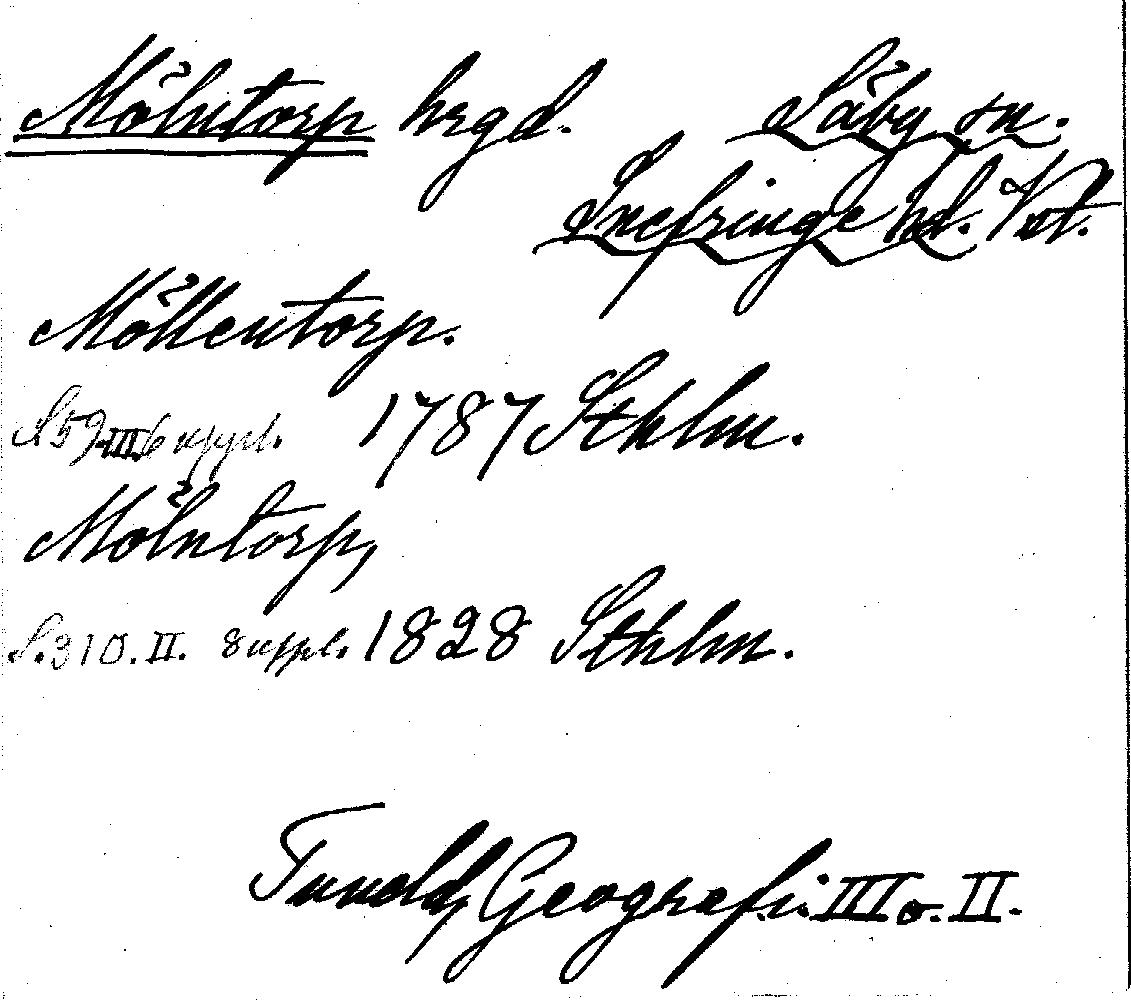 Mölntorp hrgd. Säby sn.
Snefringe hd. Vstl.
Möllentorp.
S 59 III. 6 uppl. 1787 Sthlm.
Mölntorp,
S. 310. II. 8 uppl. 1828 Sthlm.
Tuneld, Geografi. III o. II.